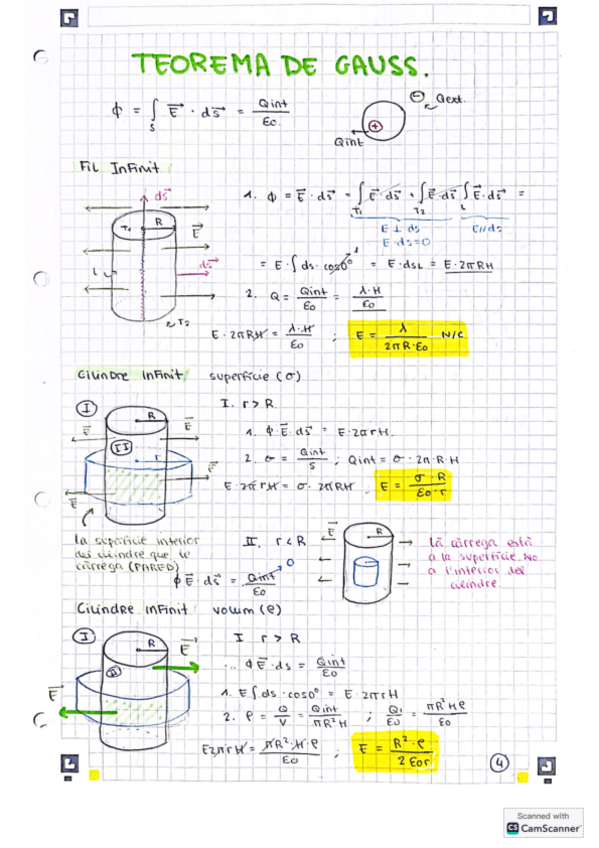 TEOREMA DE GAUSS.
ϕ = ∫s E⃗ · ds⃗ = Qint / εo
Qext.
Qint
Fil Infinit
ds⃗
1. ϕ = E⃗ · ds⃗ = ∫T1 E⃗ · ds⃗ + ∫T2 E⃗ · ds⃗ ∫L E⃗ · ds⃗ =
R
T1
E⃗
E ⊥ ds
E//ds
E · ds = 0
L
ds⃗
= E · ∫ ds · cos0° 1 = E · dsL = E · 2πRH
T2
2. Q = Qint / εo = λ·H / εo
E · 2πRH = λ·H / εo ; E = λ / 2πR·εo N/C
Cilindre Infinit superfície (σ)
I
R
I. r > R.
E⃗
E⃗
II
1. ϕ E⃗ · ds⃗ = E · 2πrH.
r
2. σ = Qint / S ; Qint = σ · 2π·R·H
E⃗
E⃗
E · 2πrH = σ · 2πRH ; E = σ·R / εo·r
la superfície interior
del cilindre que té
càrrega (PARED)
II. r < R
ϕ E⃗ · ds⃗ = Qint / εo 0
E⃗
R
la càrrega está
a la superfície. No
a l'interior del
cilindre.
Cilindre Infinit volum (ρ)
I
R
E⃗
II
E⃗
I r > R
... ϕ E⃗ · ds = Qint / εo
1. E ∫ ds · cos0° = E · 2πrH
2. ρ = Q / V = Qint / πR²H ; Qi / εo = πR²Hρ / εo
E2πrH = πR²·H·ρ / εo ; E = R²·ρ / 2εor
4
Scanned with
CS CamScanner